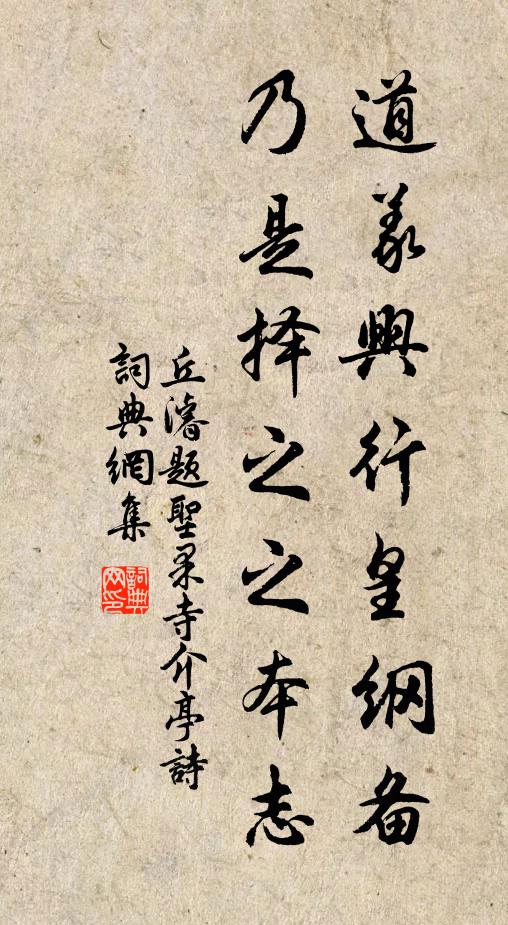 道義興行皇綱备
乃是择之之本志
丘濬題聖果寺介亭詩
詞典網集
詞典网印